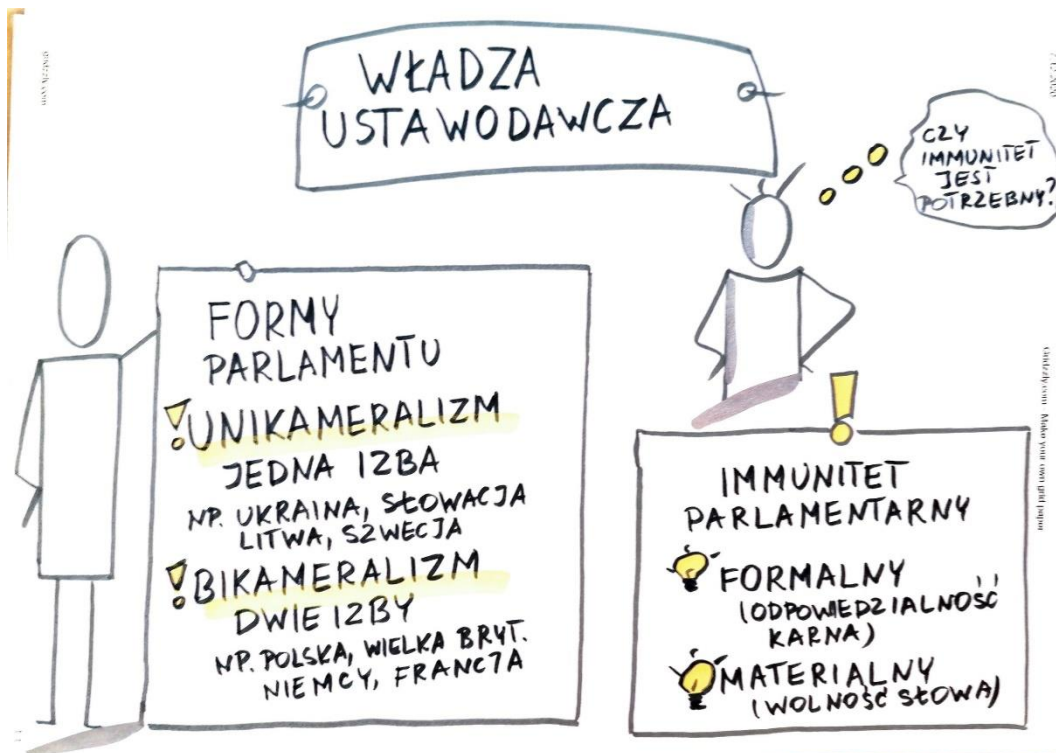 WŁADZA
USTAWODAWCZA
CZY
IMMUNITET
JEST
POTRZEBNY?
FORMY
PARLAMENTU
!UNIKAMERALIZM
JEDNA IZBA
NP. UKRAINA, SŁOWACJA
LITWA, SZWECJA
!BIKAMERALIZM
DWIE IZBY
NP. POLSKA, WIELKA BRYT.
NIEMCY, FRANCJA
!
IMMUNITET
PARLAMENTARNY
FORMALNY
(ODPOWIEDZIALNOŚĆ
KARNA)
MATERIALNY
(WOLNOŚĆ SŁOWA)
Gridzzly.com - Make your own grid paper
gridzzly.com